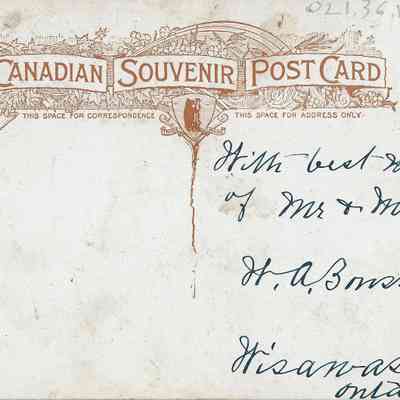 021.36.
CANADIAN SOUVENIR POST CARD
THIS SPACE FOR CORRESPONDENCE
THIS SPACE FOR ADDRESS ONLY.
With best
of Mr & M
W. A. Bons
Wisawas
Onta